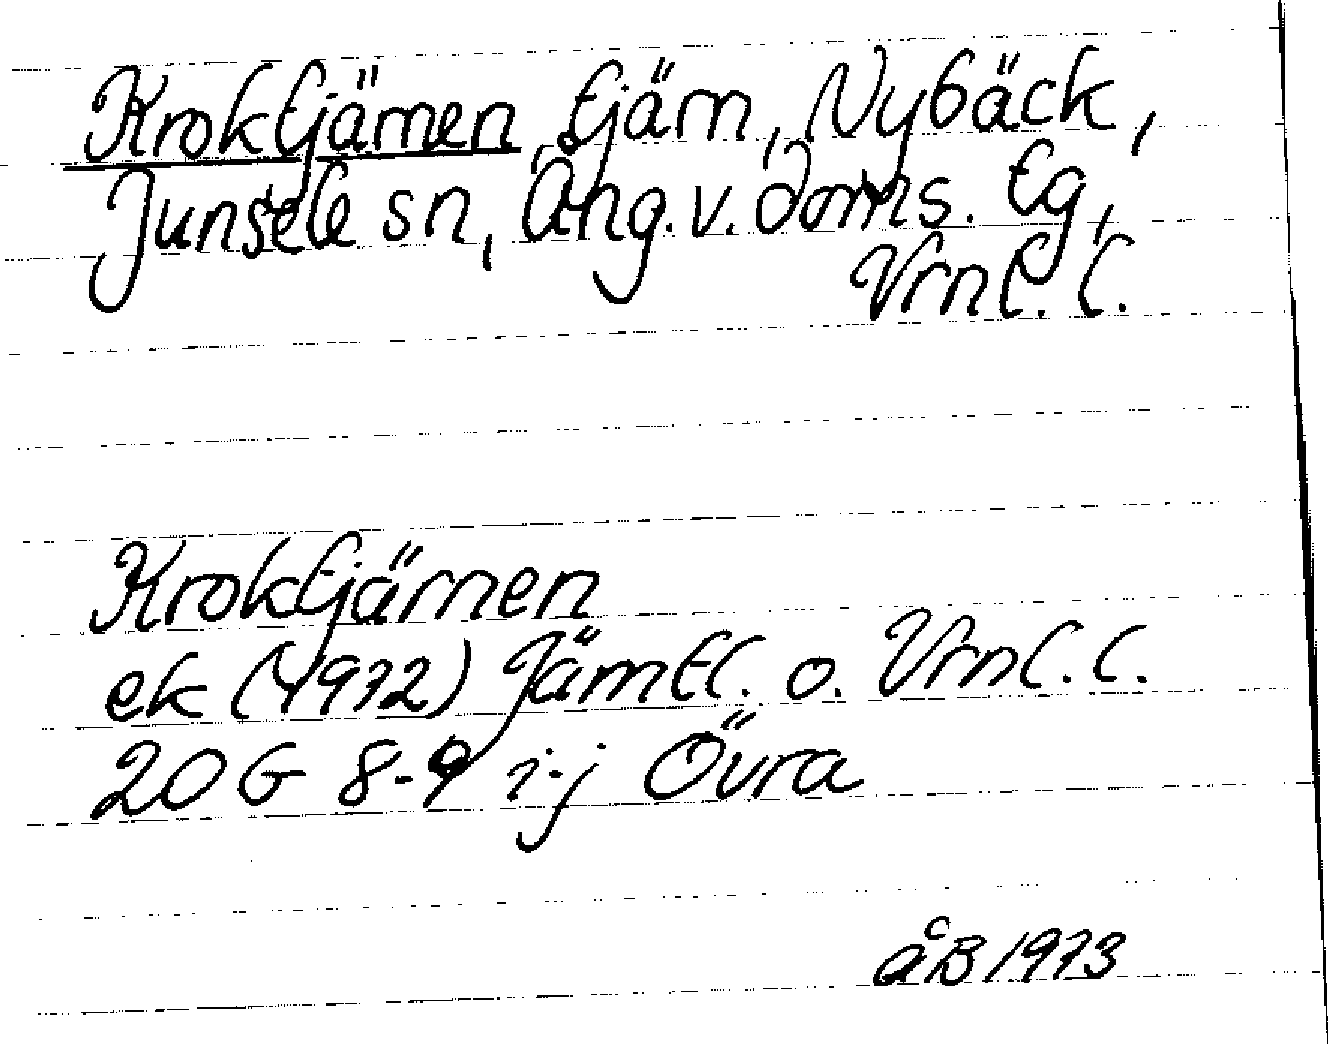 Kroktjärnen, tjärn, Nybäck,
Junsele sn, Ång. v. doms. tg,
Vrnl. l.
Kroktjärnen
ek (1972) Jämtl. o. Vrnl. l.
20 G 8-9 i-j Övra
åB 1973